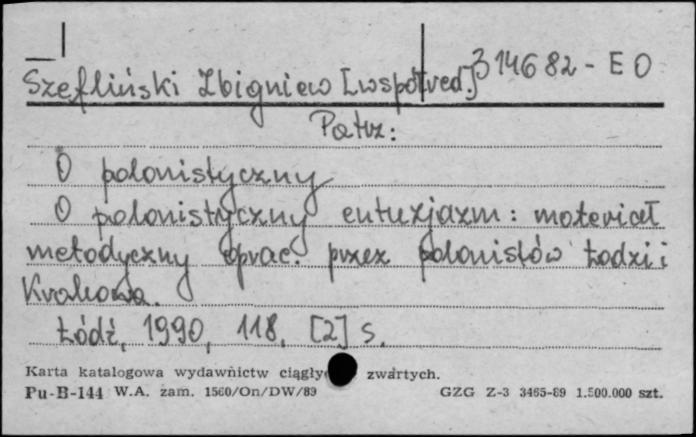 314682-EO
Szefliński Zbigniew [współred.]
Patrz:
O polonistyczny
O polonistyczny entuzjazm: materiał
metodyczny oprac. przez polonistów Łodzi i
Krakowa.
Łódź, 1990, 118, [2] s.
Karta katalogowa wydawnictw ciągły zwartych.
Pu-B-144 W.A. zam. 1560/On/DW/89 GZG Z-3 3465-89 1.500.000 szt.